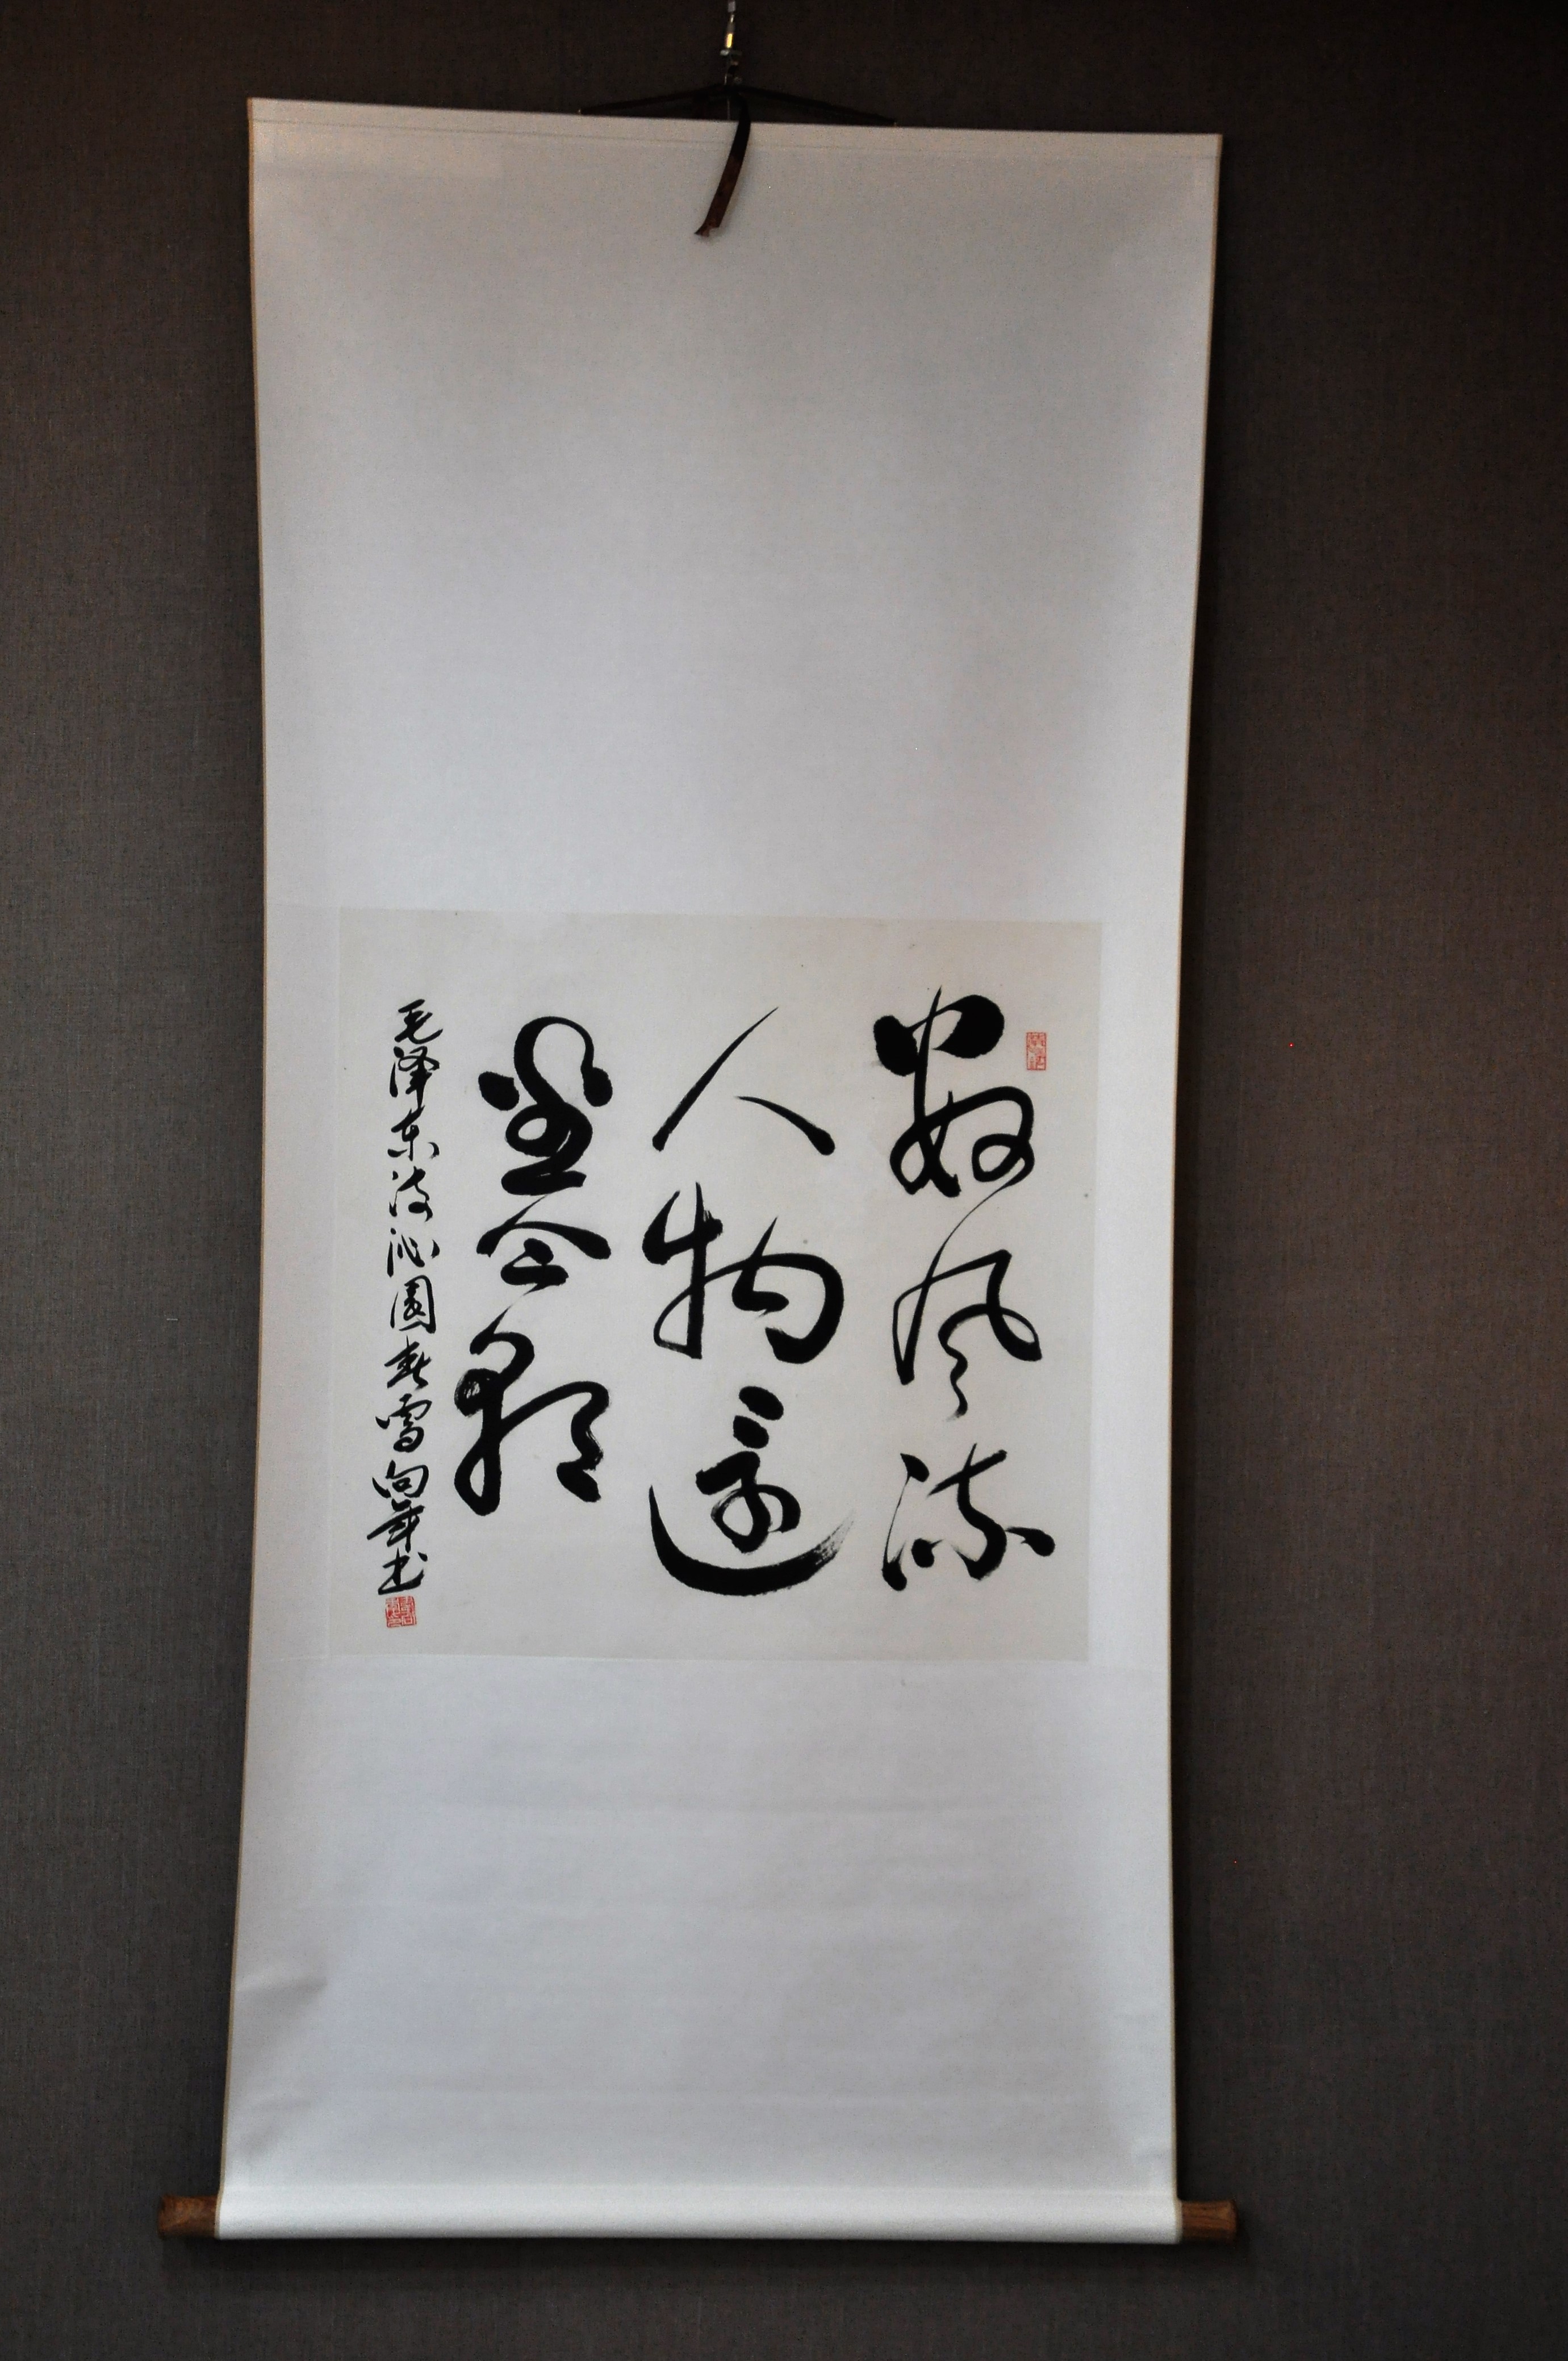 数风流
人物还
看今朝
毛泽东词沁园春雪向华书